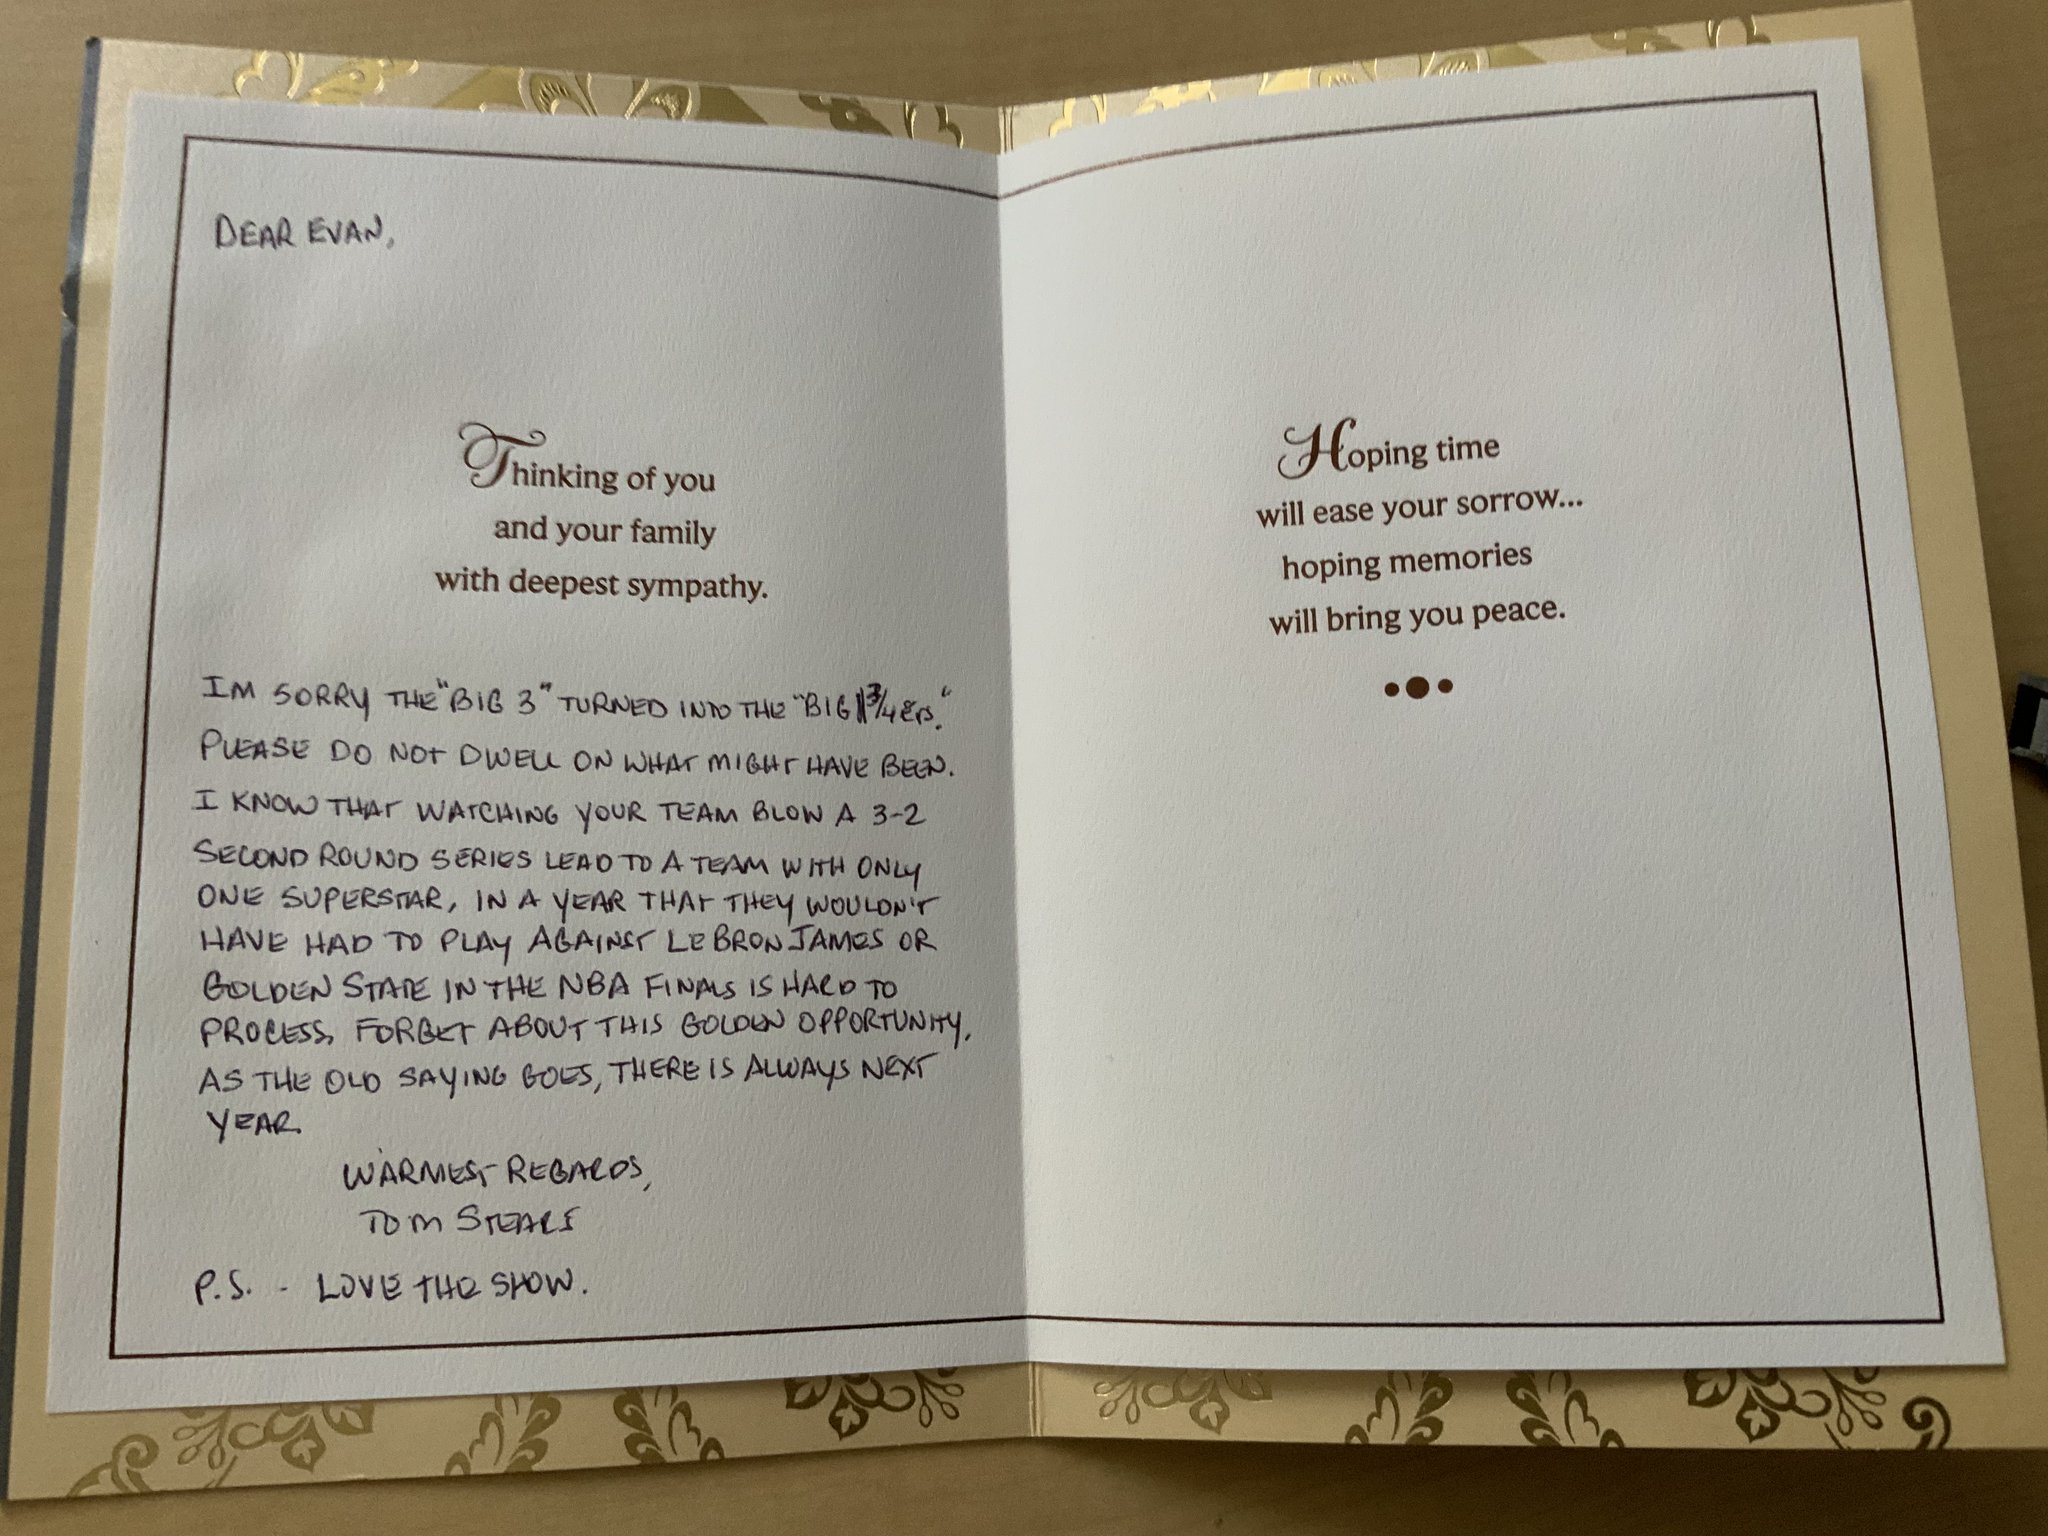 DEAR EVAN,
Thinking of you
and your family
with deepest sympathy.
IM SORRY THE "BIG 3" TURNED INTO THE "BIG 1 3/4ers."
PLEASE DO NOT DWELL ON WHAT MIGHT HAVE BEEN.
I KNOW THAT WATCHING YOUR TEAM BLOW A 3-2
SECOND ROUND SERIES LEAD TO A TEAM WITH ONLY
ONE SUPERSTAR, IN A YEAR THAT THEY WOULDN'T
HAVE HAD TO PLAY AGAINST LEBRON JAMES OR
GOLDEN STATE IN THE NBA FINALS IS HARD TO
PROCESS. FORGET ABOUT THIS GOLDEN OPPORTUNITY.
AS THE OLD SAYING GOES, THERE IS ALWAYS NEXT
YEAR.
WARMEST REGARDS,
TOM STEARS
P.S. - LOVE THE SHOW.
Hoping time
will ease your sorrow...
hoping memories
will bring you peace.